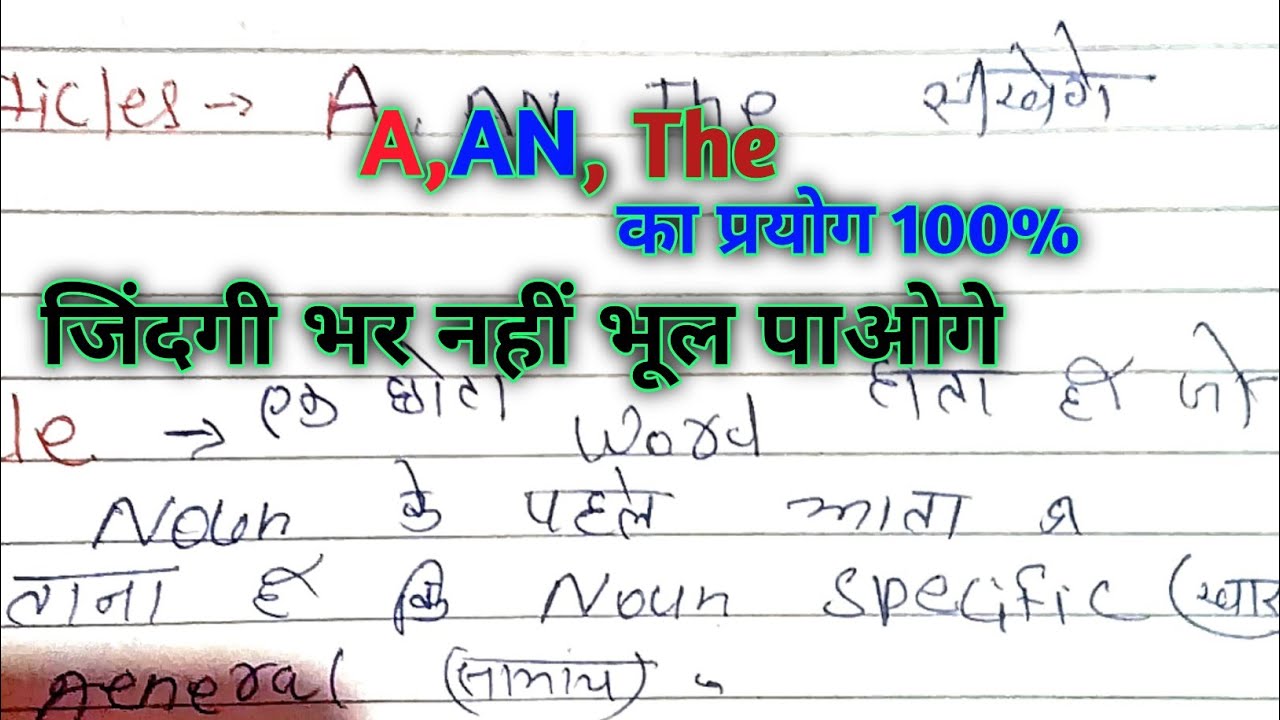 ticles → A, AN The सीखेगे
A,AN, The
का प्रयोग 100%
जिंदगी भर नहीं भूल पाओगे
le → एक छोटा Word होता है जो
Noun के पहले आता व
ताना है कि Noun specific (खास
General (सामांय)